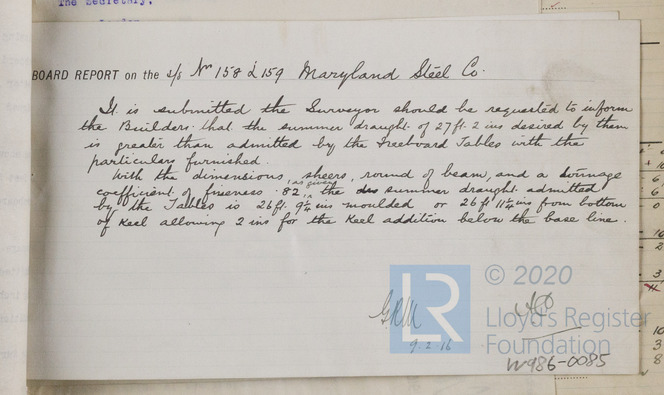 The Secretary.
FREEBOARD REPORT on the s/s Nos 158 & 159 Maryland Steel Co.
It is submitted the Surveyor should be requested to inform
the Builders that the summer draught of 27 ft. 2 ins desired by them
is greater than admitted by the Freeboard Tables with the
particulars furnished.
With the dimensions, sheers, round of beam, and a tonnage
coefficient of fineness .82, as given, the summer draught admitted
by the Tables is 26 ft. 9¼ ins moulded or 26 ft 11¼ ins from bottom
of keel allowing 2 ins for the keel addition below the base line.
9.2.16
© 2020
LR
Lloyd's Register
Foundation
W986-0085